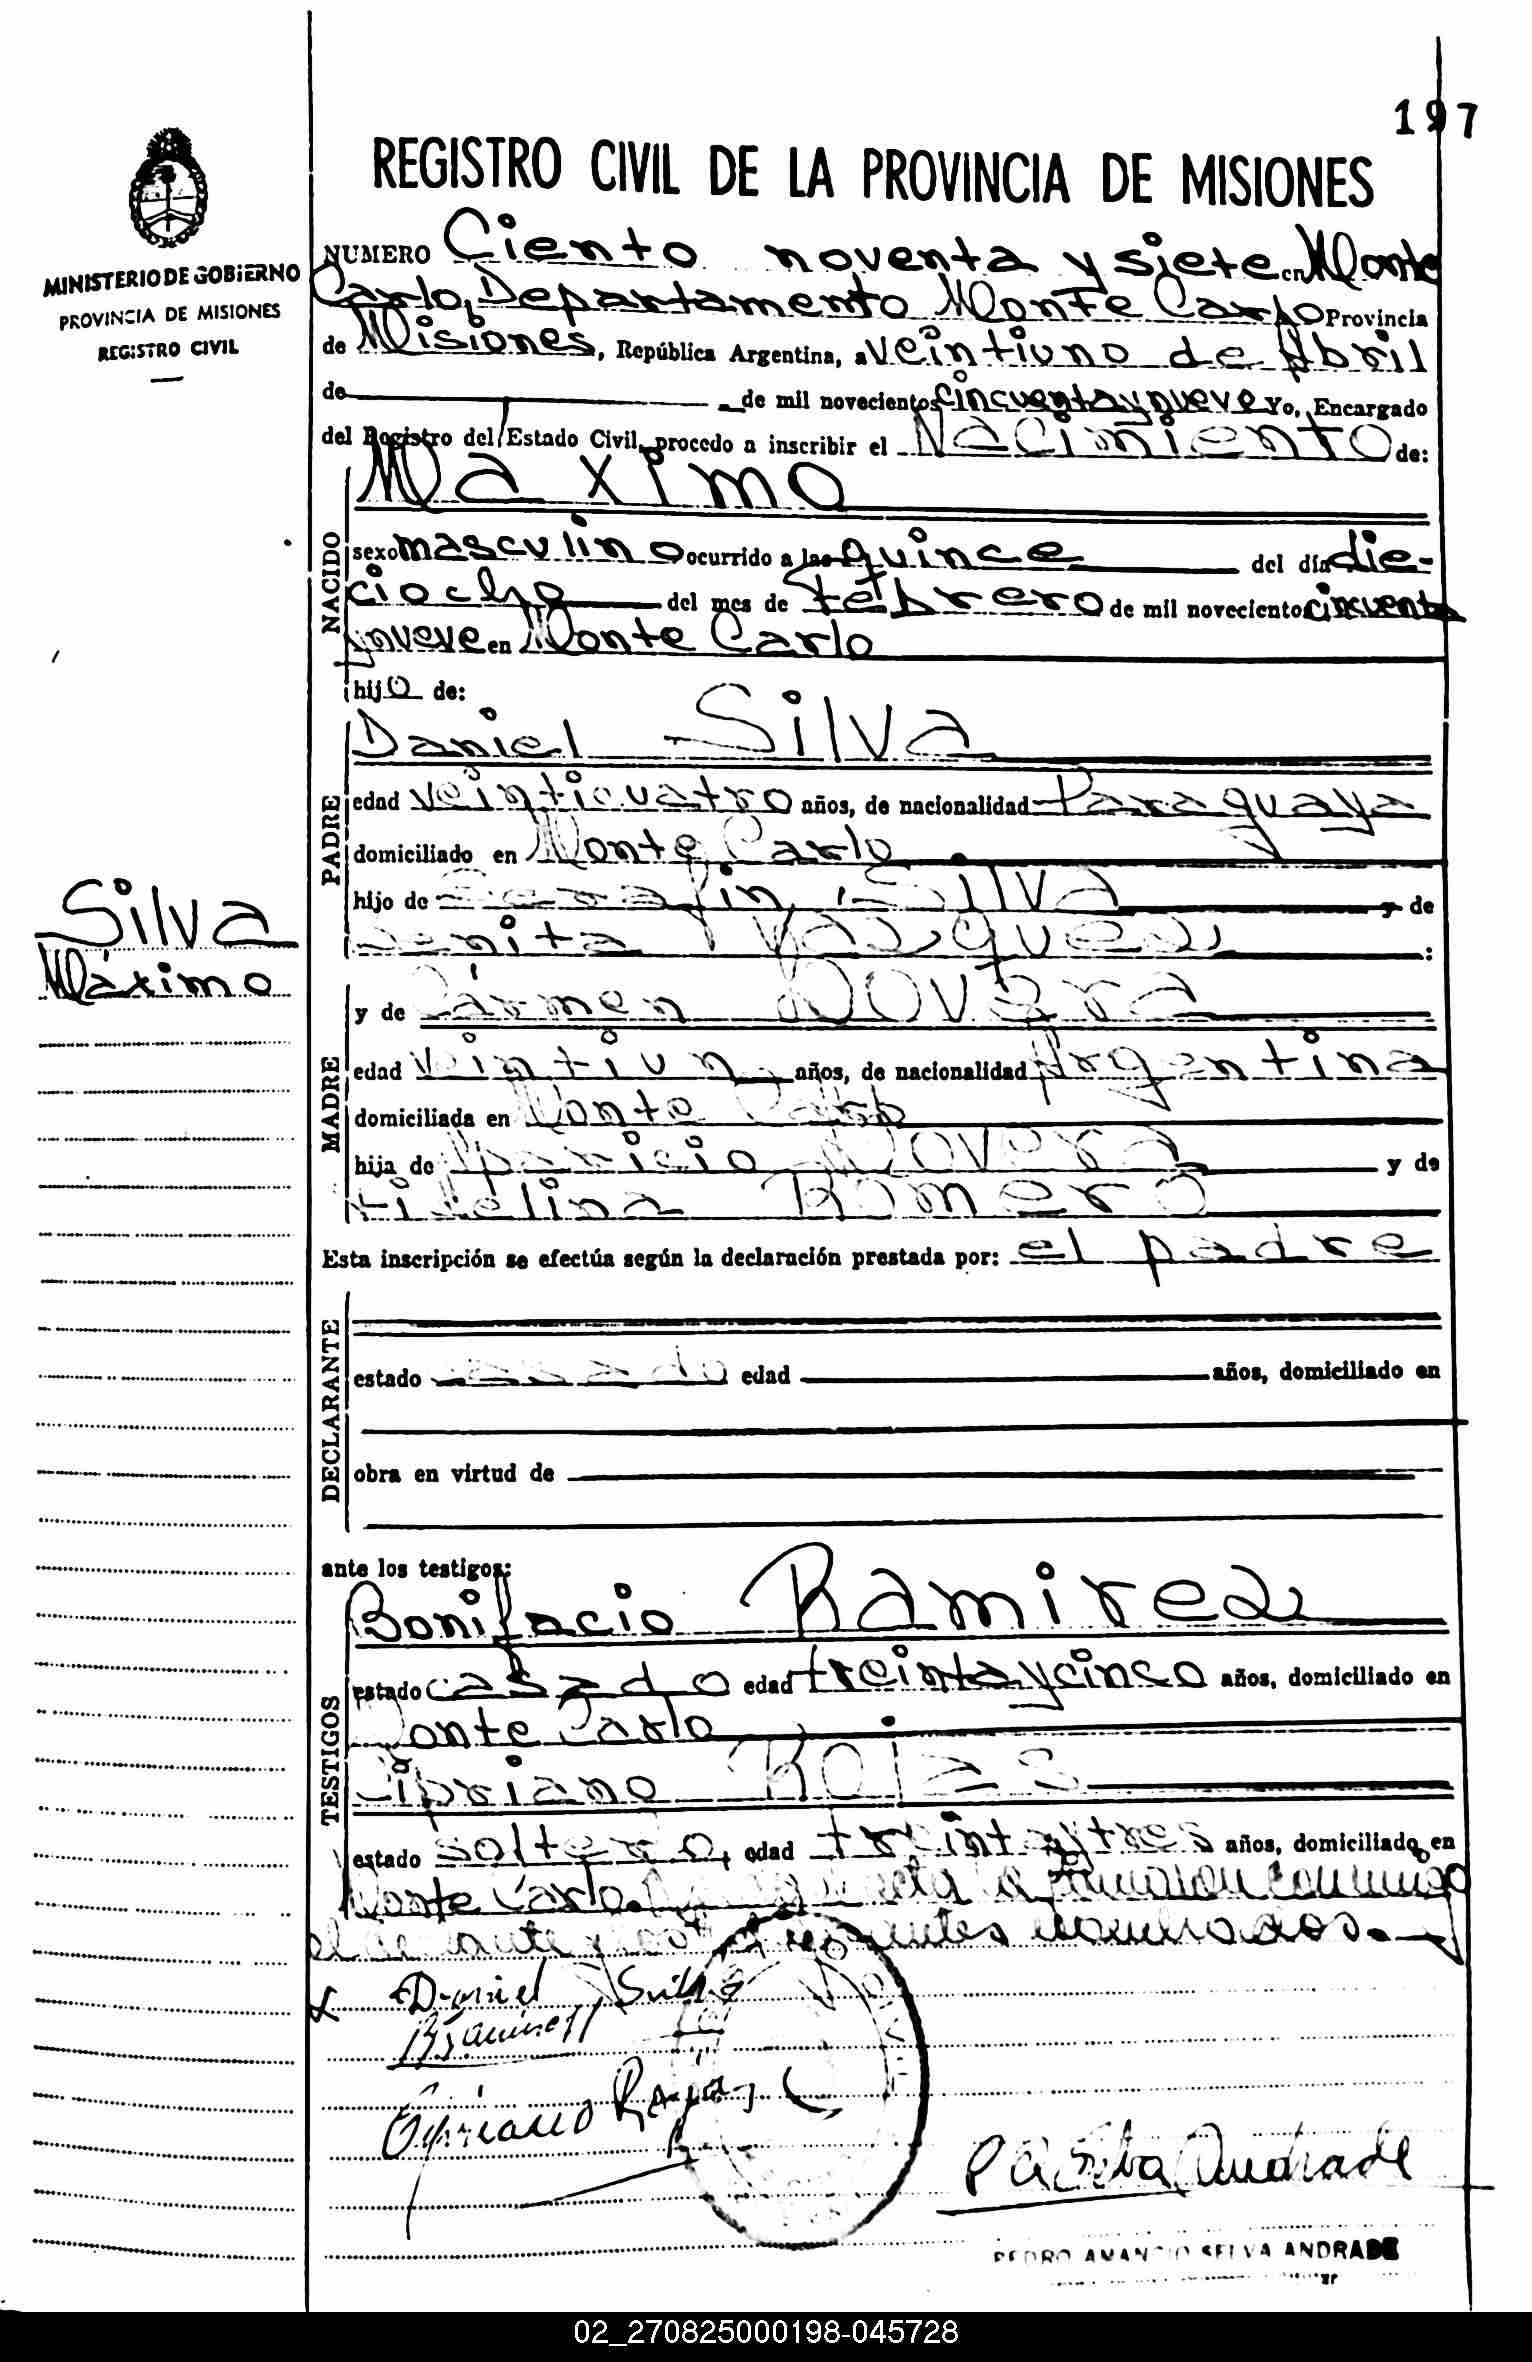 197
REGISTRO CIVIL DE LA PROVINCIA DE MISIONES
MINISTERIO DE GOBIERNO
PROVINCIA DE MISIONES
REGISTRO CIVIL
NUMERO Ciento noventa y siete en Monte
Carlo, Departamento Monte Carlo Provincia
de Misiones, República Argentina, a veintiuno de Abril
de de mil novecientos cincuenta y nueve Yo, Encargado
del Registro del Estado Civil, procedo a inscribir el Nacimiento de:
Maximo
NACIDO
sexo masculino ocurrido a las quince del día die-
ciocho del mes de febrero de mil novecientos cincuenta
y nueve en Monte Carlo
hijo de:
Daniel Silva
PADRE
edad veinticuatro años, de nacionalidad Paraguaya
domiciliado en Monte Carlo
hijo de Serafin Silva y de
Benita Vasquez :
Silva
Máximo
y de Cármen Dovera
MADRE
edad veintiun años, de nacionalidad Argentina
domiciliada en Monte Carlo
hija de Aparicio Dovera y de
Romero
Esta inscripción se efectúa según la declaración prestada por: el padre
DECLARANTE
estado casado edad años, domiciliado en
obra en virtud de
ante los testigos:
Bonifacio Ramirez
TESTIGOS
estado casado edad treinta y cinco años, domiciliado en
Monte Carlo
Cipriano Rojas
estado soltero, edad treinta y tres años, domiciliado en
Monte Carlo. acta la firmaron conmigo
nombrados.-
Daniel Silva
Ramirez
Cipriano Rojas
P A Selva Andrade
PEDRO AMANCIO SELVA ANDRADE
02_270825000198-045728